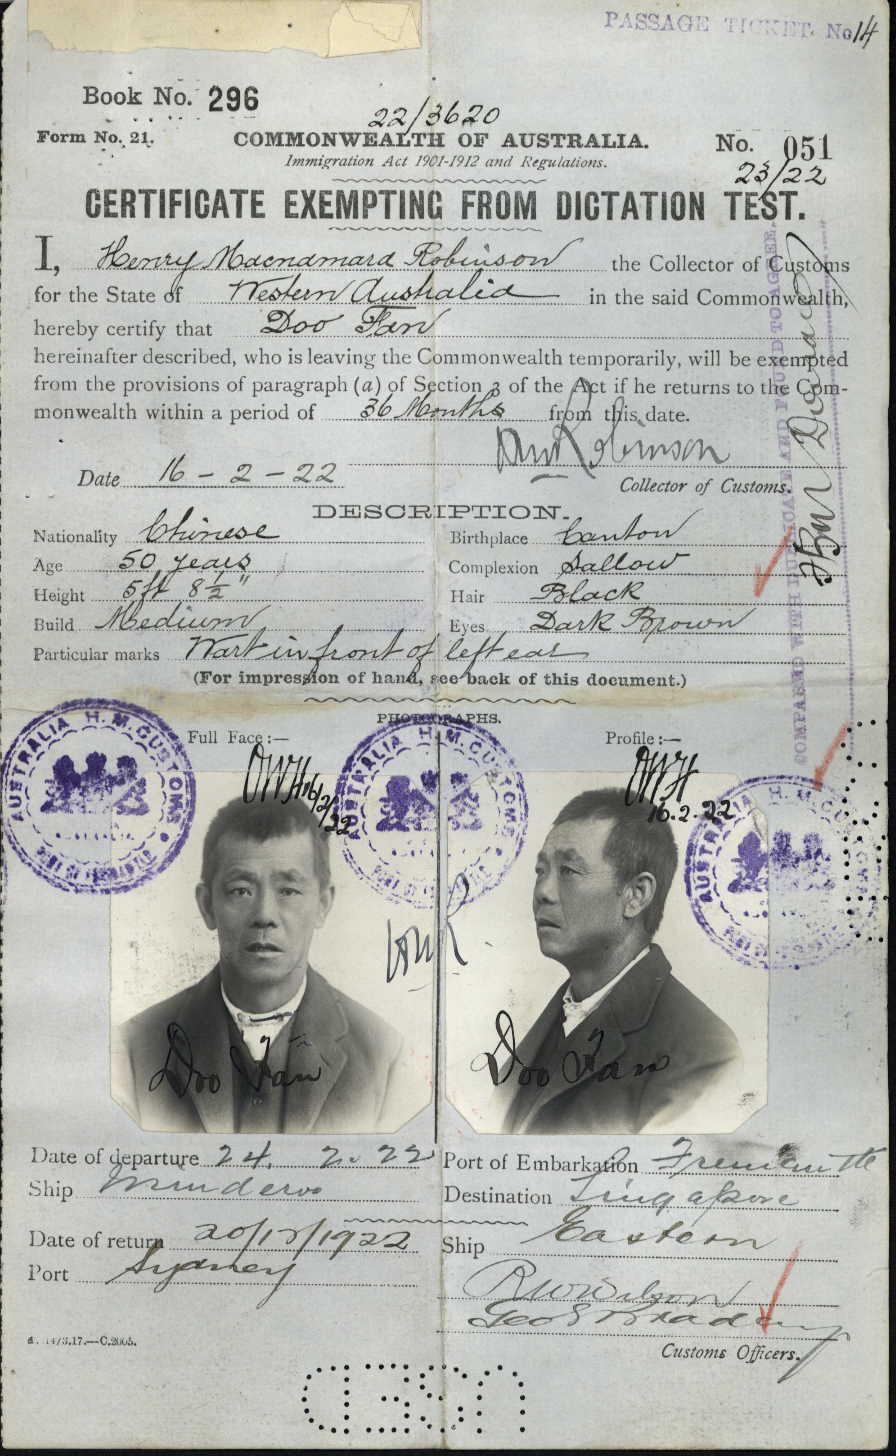 PASSAGE TICKET No 14
Book No. 296
22/3620
Form No. 21.
COMMONWEALTH OF AUSTRALIA.
No. 051
Immigration Act 1901-1912 and Regulations.
23/22
CERTIFICATE EXEMPTING FROM DICTATION TEST.
I, Henry Macnamara Robinson the Collector of Customs
for the State of Western Australia in the said Commonwealth,
hereby certify that Doo Fan
hereinafter described, who is leaving the Commonwealth temporarily, will be exempted
from the provisions of paragraph (a) of Section 3 of the Act if he returns to the Com-
monwealth within a period of 36 Months from this date.
Robinson
Date 16-2-22
Collector of Customs.
COMPARED WITH DUPLICATE AND FOUND TO AGREE.
DESCRIPTION.
Nationality Chinese
Birthplace Canton
Age 50 years
Complexion Sallow
Height 5ft 8½"
Hair Black
Build Medium
Eyes Dark Brown
Particular marks Wart in front of left ear
(For impression of hand, see back of this document.)
PHOTOGRAPHS.
Full Face:—
Profile:—
AUSTRALIA H. M. CUSTOMS
AUSTRALIA H. M. CUSTOMS
AUSTRALIA H. M. CUSTOMS
OWH 16/2/22
OWH
16.2.22
HMR.
Doo Fan
Doo Fan
Date of departure 24. 2. 22
Port of Embarkation Fremantle
Ship Minderoo
Destination Singapore
Date of return 20/12/1922
Ship Eastern
Port Sydney
R W Wilson
Geo S Bradley
Customs Officers.
C.2005.
USED